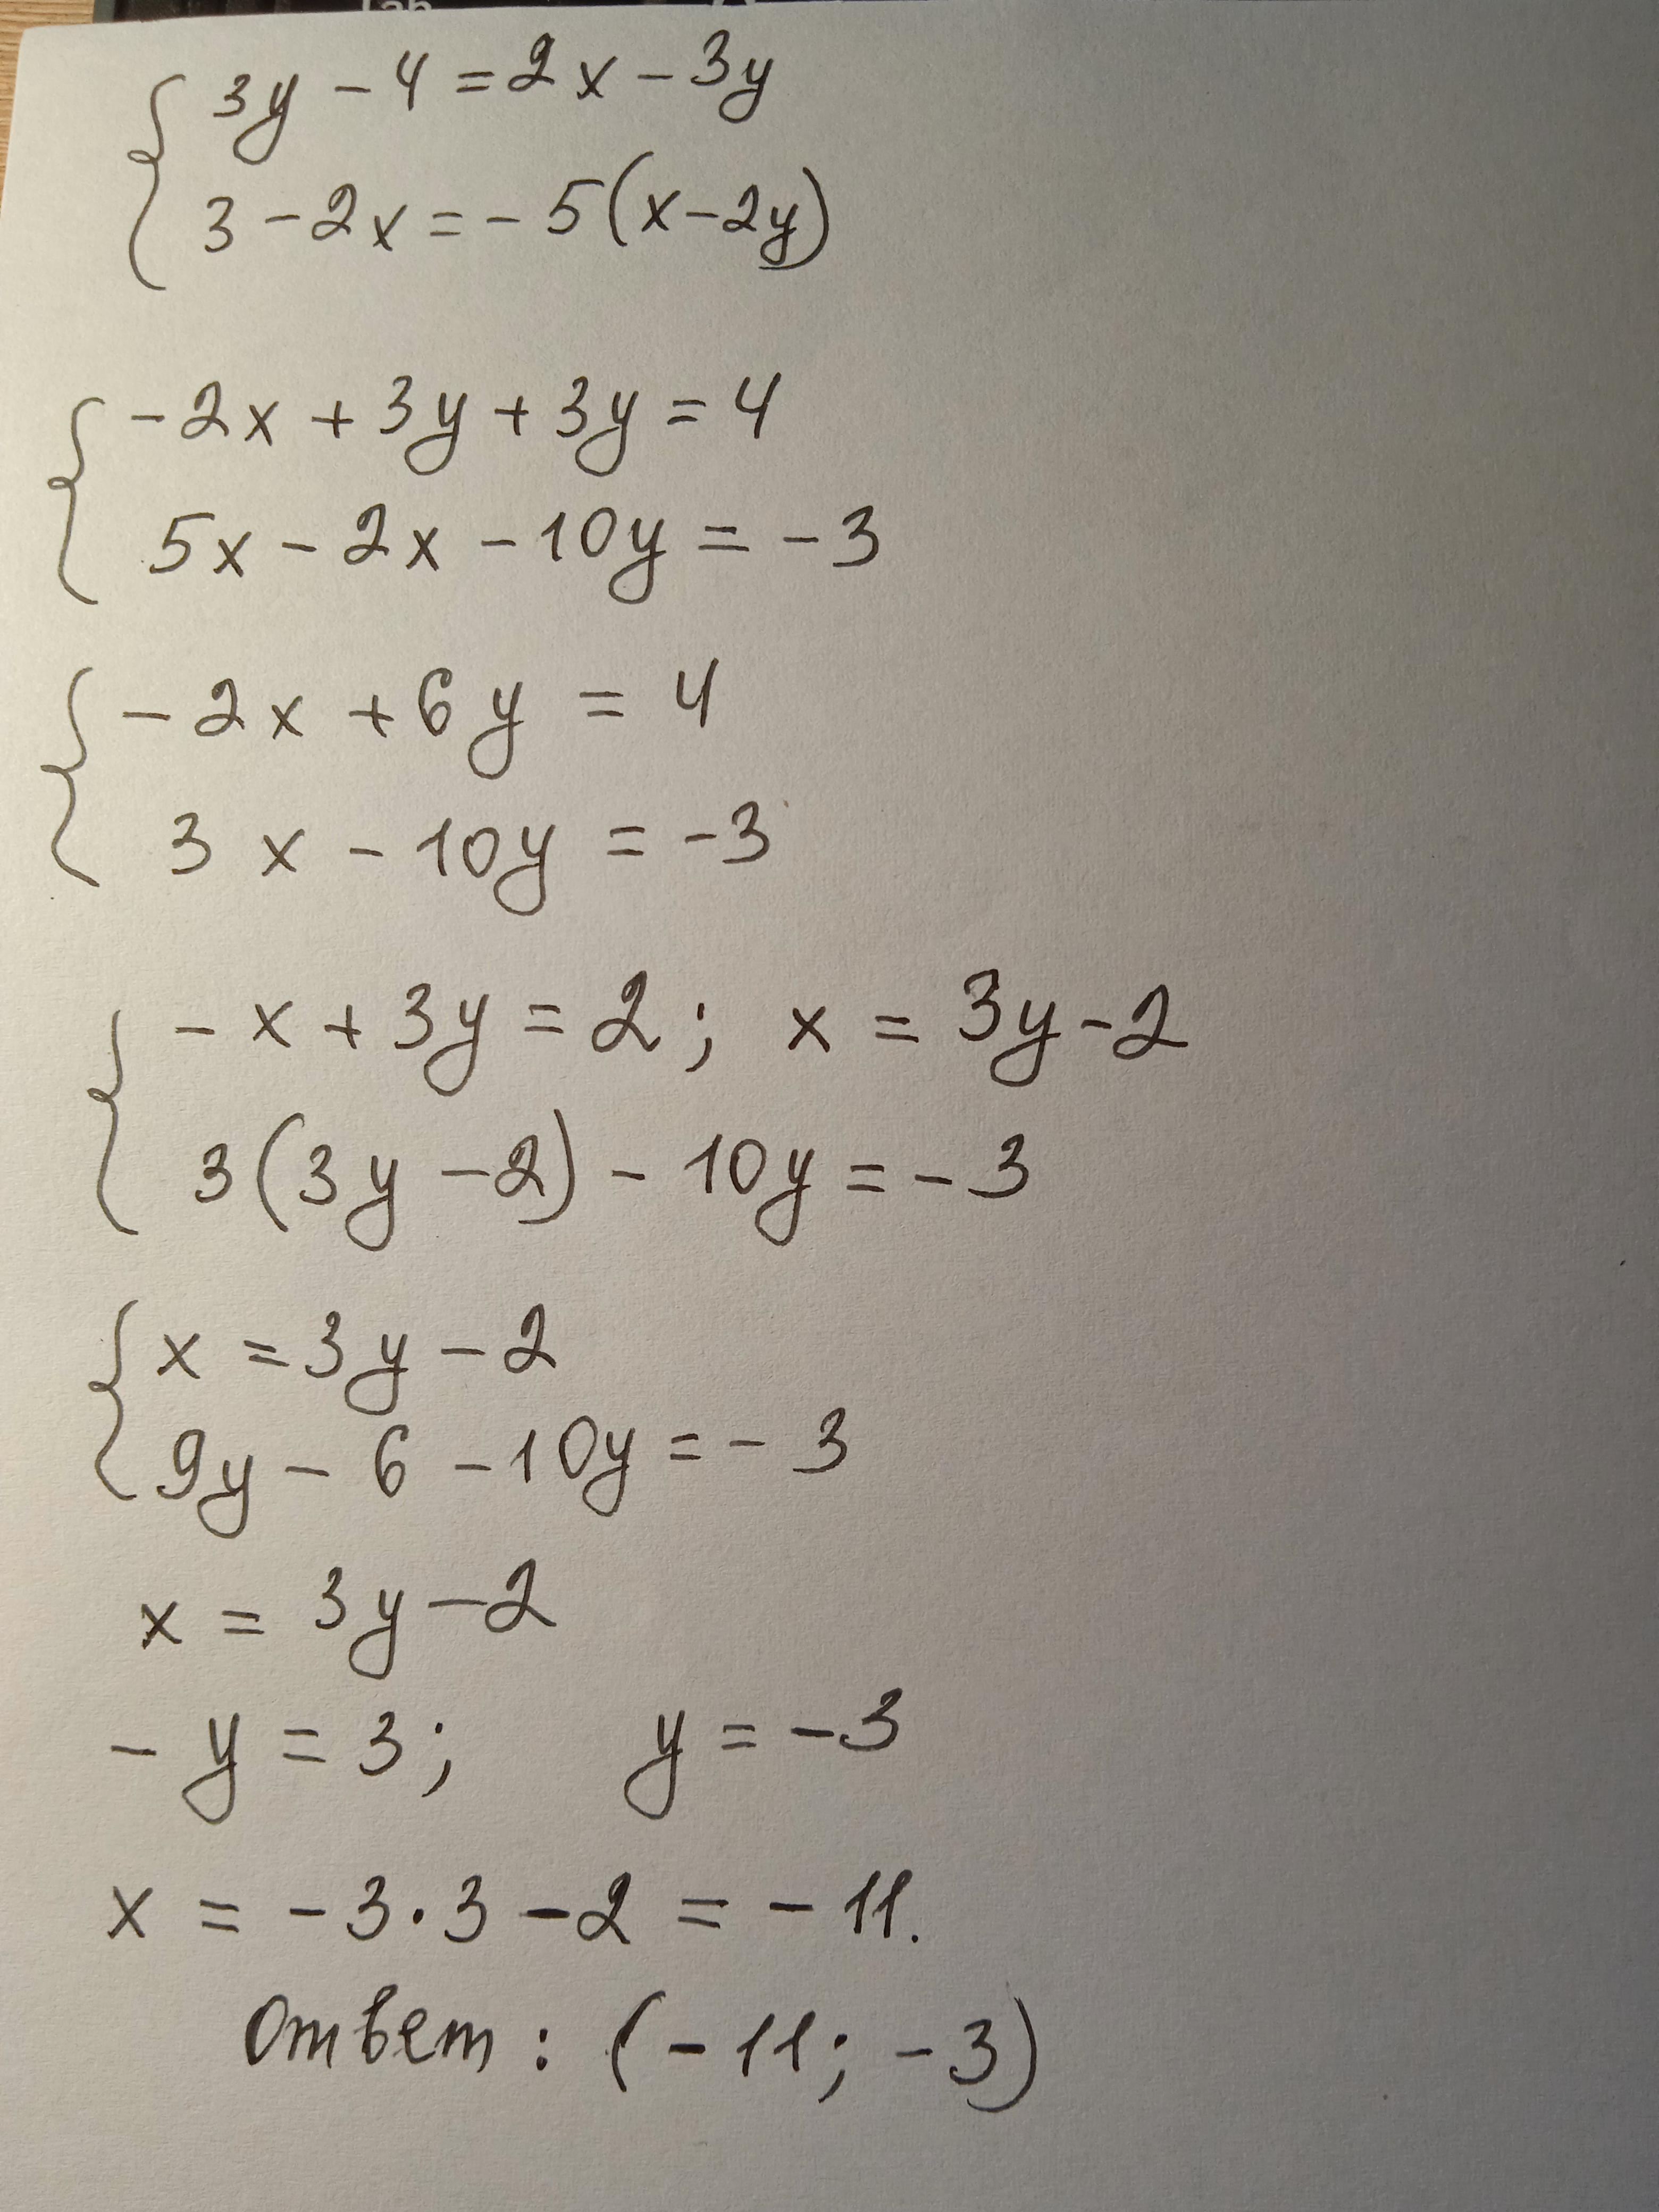 3y - 4 = 2x - 3y
3 - 2x = - 5(x - 2y)
- 2x + 3y + 3y = 4
5x - 2x - 10y = - 3
- 2x + 6y = 4
3x - 10y = - 3
- x + 3y = 2; x = 3y - 2
3(3y - 2) - 10y = - 3
x = 3y - 2
9y - 6 - 10y = - 3
x = 3y - 2
- y = 3; y = - 3
x = - 3 · 3 - 2 = - 11.
Ответ: (- 11; - 3)